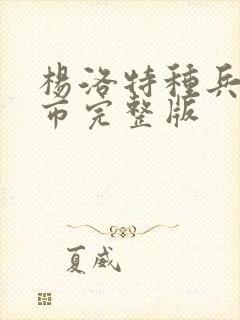 楊洛特種兵
市完整版
夏威